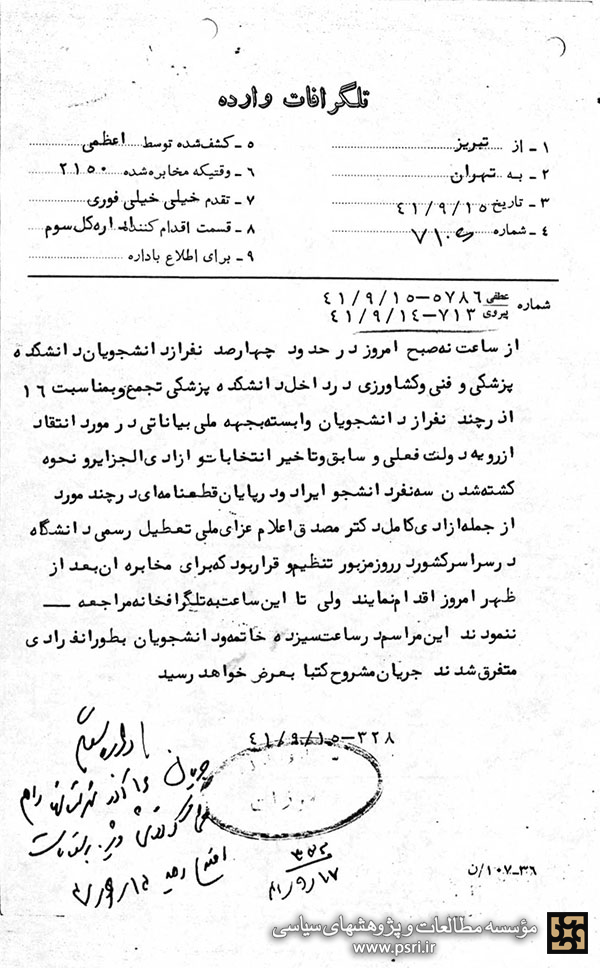 تلگرافات وارده
۱ - از تبریز
۲ - به تهران
۳ - تاریخ ۴۱/۹/۱۵
۴ - شماره ۷۱۰۵
۵ - کشف‌شده توسط اعظمی
۶ - وقتیکه مخابره‌شده ۲۱۵۰
۷ - تقدم خیلی خیلی فوری
۸ - قسمت اقدام کننده اداره کل سوم
۹ - برای اطلاع باداره
شماره عطفی ۵۷۸۶-۴۱/۹/۱۵
پیروی ۷۱۳-۴۱/۹/۱۴
از ساعت نه صبح امروز در حدود چهارصد نفر از دانشجویان دانشکده
پزشکی و فنی وکشاورزی در داخل دانشکده پزشکی تجمع وبمناسبت ۱۶
اذر چند نفر از دانشجویان وابسته بجبهه ملی بیاناتی در مورد انتقاد
از رویه دولت فعلی و سابق وتاخیر انتخابات و ازادی الجزایر و نحوه
کشته شدن سه نفر دانشجو ایراد ودر پایان قطعنامه‌ای در چند مورد
از جمله ازادی کامل دکتر مصدق اعلام عزای ملی تعطیل رسمی دانشگاه
در سراسر کشور در روز مزبور تنظیم و قرار بود که برای مخابره ان بعد از
ظهر امروز اقدام نمایند ولی تا این ساعت به تلگرافخانه مراجعه —
ننمودند این مراسم در ساعت سیزده خاتمه و دانشجویان بطور انفرادی
متفرق شدند جریان مشروح کتبا بعرض خواهد رسید
۳۲۸-۴۱/۹/۱۵
جریان ۱۶ آذر
۱۰۷-۳۶/ن
مؤسسه مطالعات و پژوهشهای سیاسی
www.psri.ir